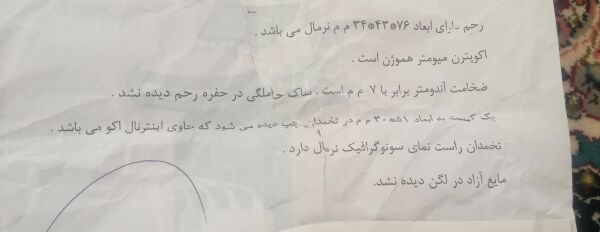 رحم دارای ابعاد ۷۶*۴۳*۳۴ م م نرمال می باشد .
اکوپترن میومتر هموژن است .
ضخامت آندومتر برابر با ۷ م م است . ساک حاملگی در حفره رحم دیده نشد .
یک کیست به ابعاد ۵۱*۳۰ م م در تخمدان چپ دیده می شود که حاوی اینترنال اکو می باشد .
تخمدان راست نمای سونوگرافیک نرمال دارد .
مایع آزاد در لگن دیده نشد.